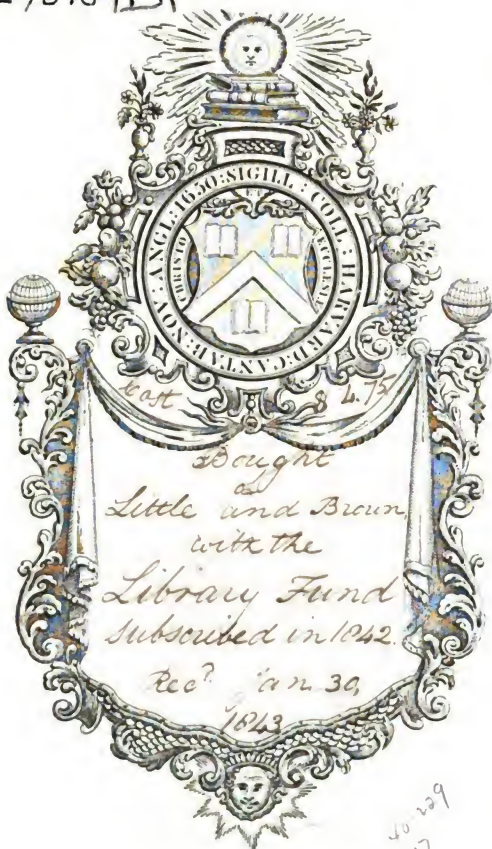 SIGILL: COLL: HARVARD: CANTAB: NOV: ANGL: 1650:
CHRISTO ECCLESIÆ
Cost $ 4.75
Bought
Little and Brown,
with the
Library Fund
subscribed in 1842.
Recd. Jan 30,
1843